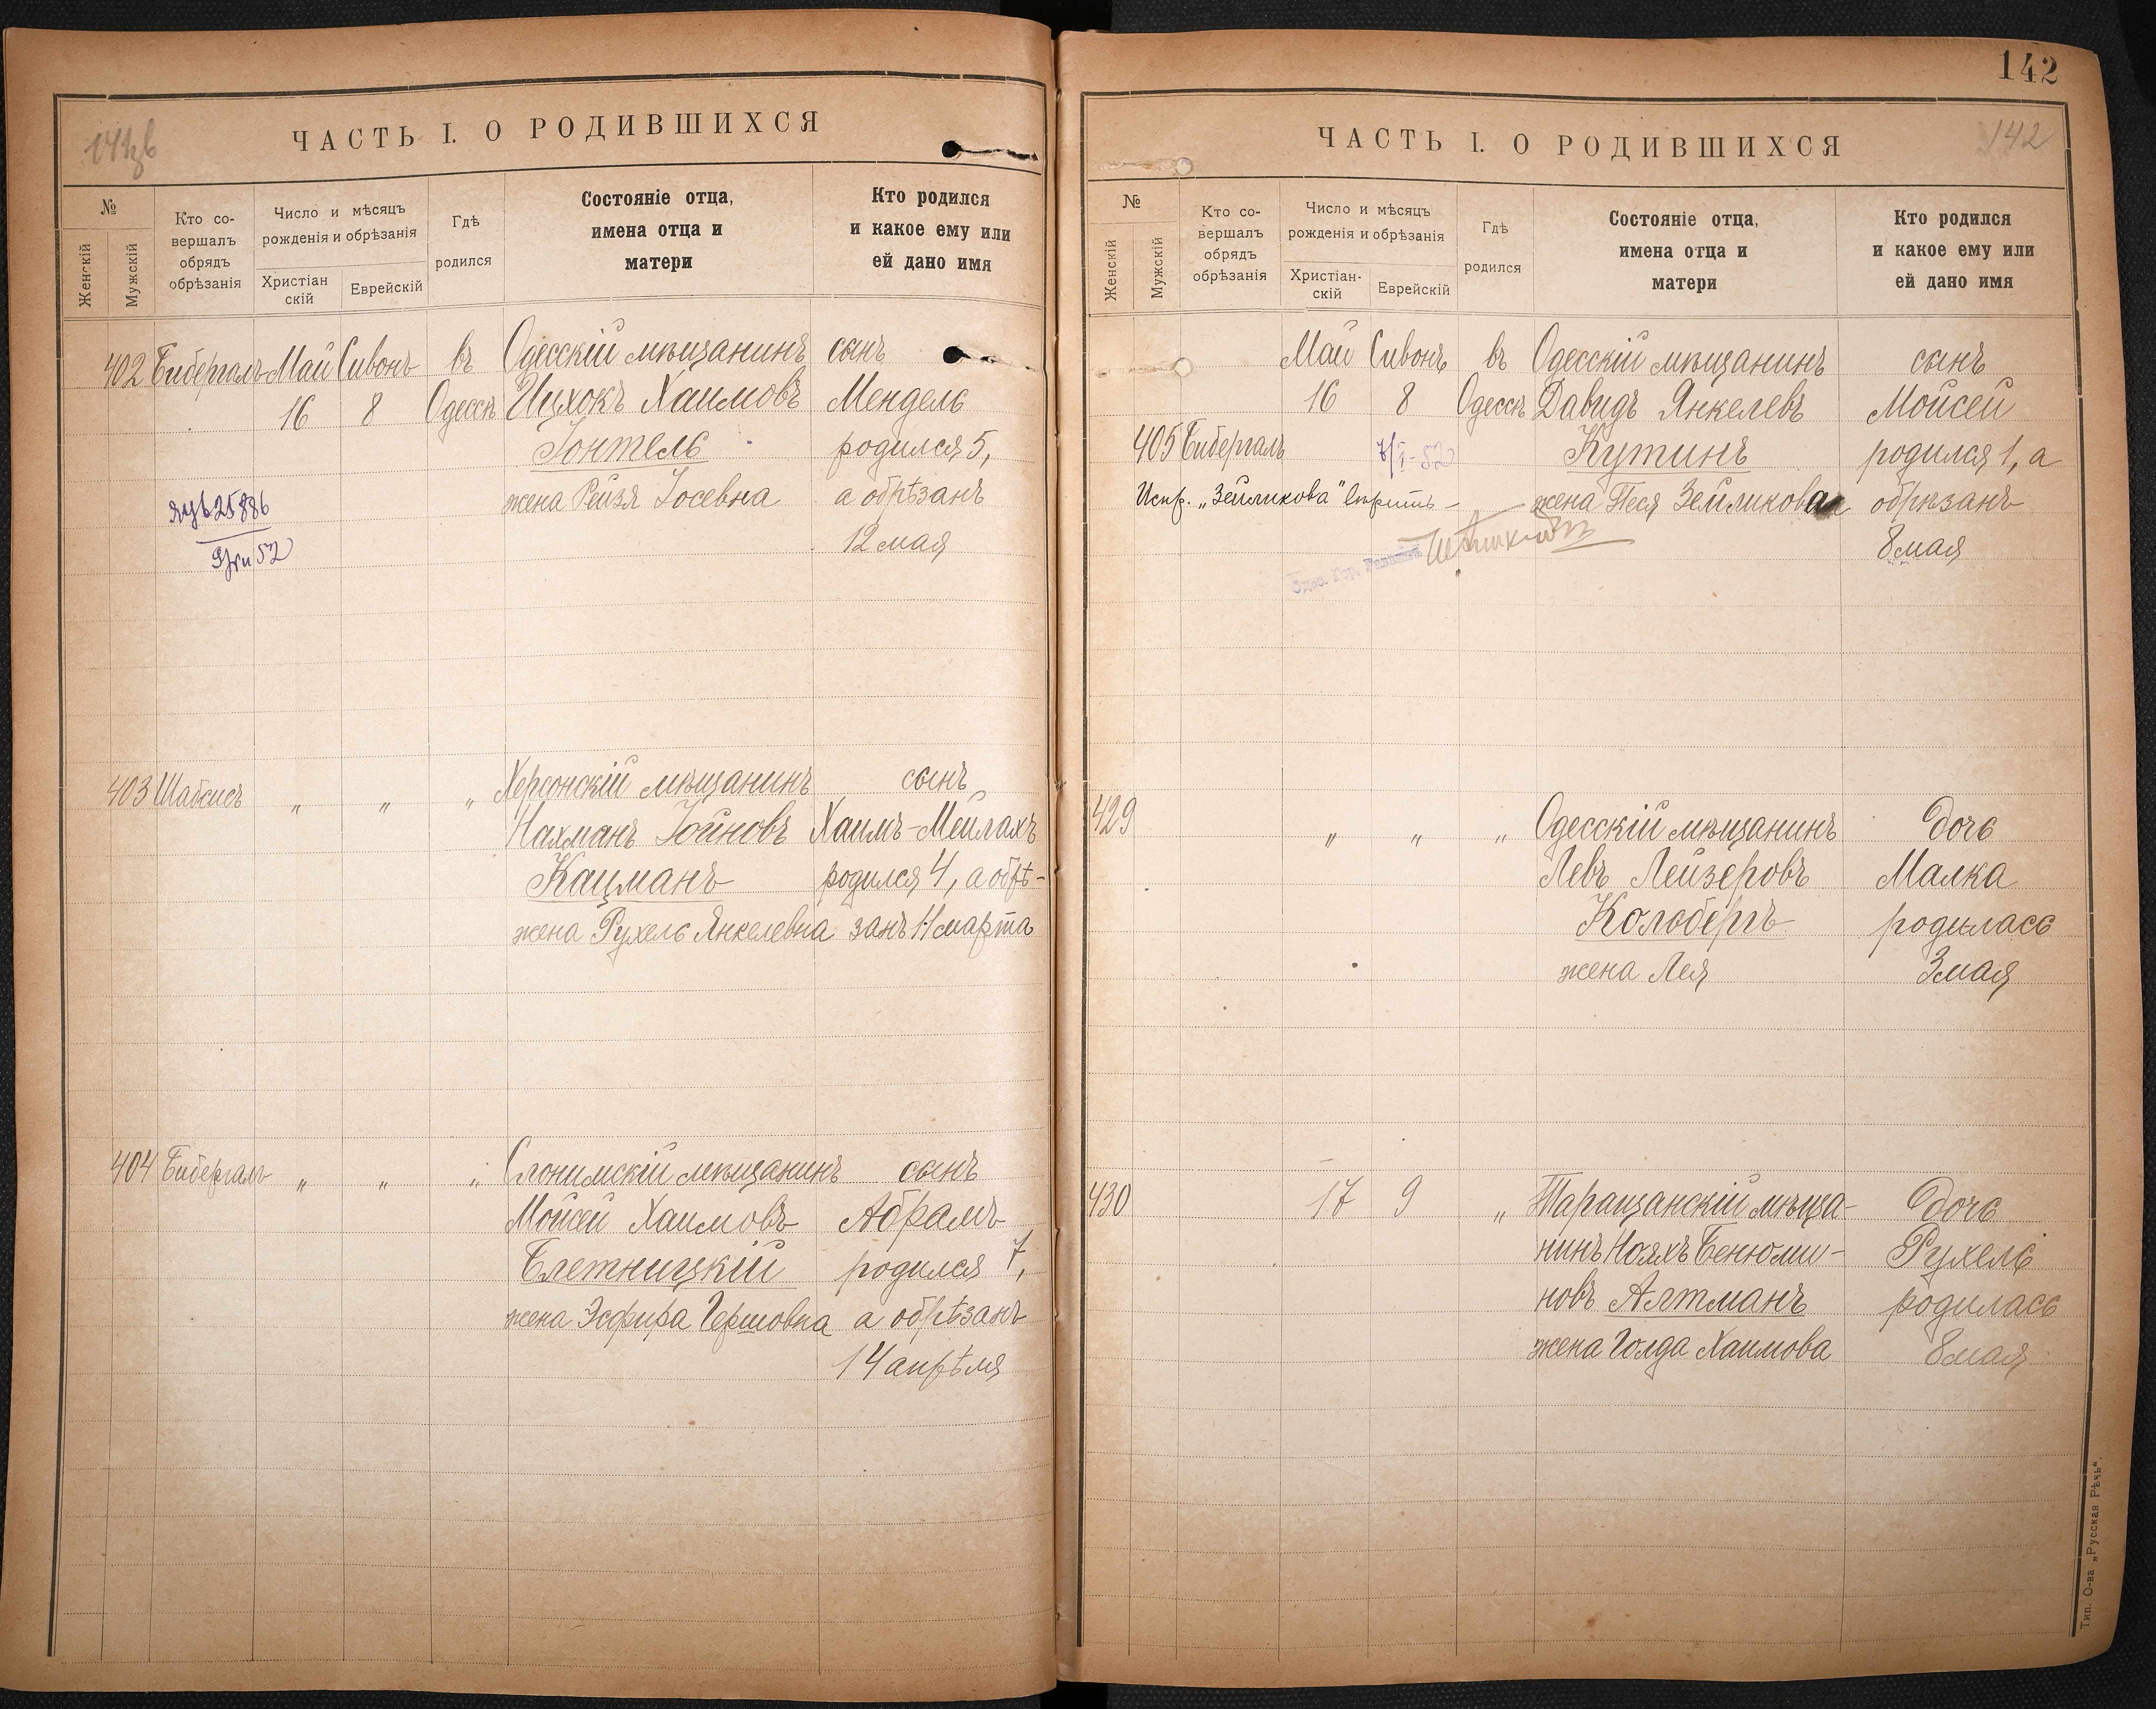 141об
ЧАСТЬ I. О РОДИВШИХСЯ
№
Женскій
Мужскій
Кто со-
вершалъ
обрядъ
обрѣзанія
Число и мѣсяцъ
рожденія и обрѣзанія
Христіан
скій
Еврейскій
Гдѣ
родился
Состояніе отца,
имена отца и
матери
Кто родился
и какое ему или
ей дано имя
402 Бибергалъ Май Сивонъ въ Одесскій мѣщанинъ сынъ
16 8 Одессѣ Ицхокъ Хаимовъ Мендель
Гонтель родился 5,
жена Рейзя Іосевна а обрѣзанъ
12 мая
25886
52
403 Шабсисъ „ „ „ Херсонскій мѣщанинъ сынъ
Нахманъ Іойновъ Хаимъ-Мейлахъ
Кацманъ родился 4, а обрѣ-
жена Рухель Янкелевна занъ 11 марта
404 Бибергалъ „ „ „ Слонимскій мѣщанинъ сынъ
Мойсей Хаимовъ Абрамъ
Блетницкій родился 7,
жена Эсфира Гершовна а обрѣзанъ
14 апрѣля
142
ЧАСТЬ I. О РОДИВШИХСЯ
142
№
Женскій
Мужскій
Кто со-
вершалъ
обрядъ
обрѣзанія
Число и мѣсяцъ
рожденія и обрѣзанія
Христіан-
скій
Еврейскій
Гдѣ
родился
Состояніе отца,
имена отца и
матери
Кто родился
и какое ему или
ей дано имя
Май Сивонъ въ Одесскій мѣщанинъ сынъ
16 8 Одессѣ Давидъ Янкелевъ Мойсей
405 Бибергалъ Кутинъ родился 1, а
Испр. „Зейликова" вѣрить – жена Песя Зейликова обрѣзанъ
8 мая
Одес. Гор. Раввинъ
429 „ „ „ Одесскій мѣщанинъ дочь
Левъ Лейзеровъ Малка
Кольбергъ родилась
жена Лея 3 мая
430 17 9 „ Таращанскій мѣща- дочь
нинъ Нояхъ Бенюми- Рухель
новъ Алтманъ родилась
жена Голда Хаимова 8 мая
Тип. О-ва „Русская Рѣчь".